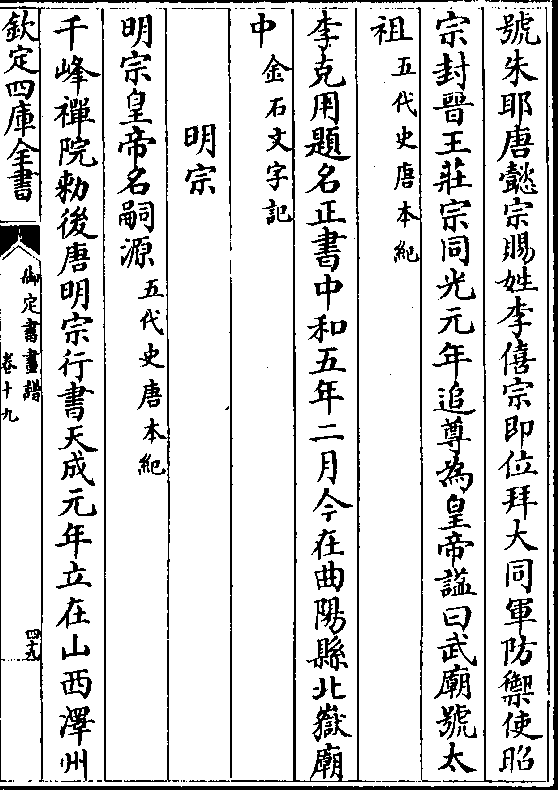 號朱耶唐懿宗賜姓李僖宗即位拜大同軍防禦使昭
宗封晉王莊宗同光元年追尊為皇帝諡曰武廟號太
祖五代史唐本紀
李克用題名正書中和五年二月今在曲陽縣北嶽廟
中金石文字記
明宗
明宗皇帝名嗣源五代史唐本紀
千峰禪院勑後唐明宗行書天成元年立在山西澤州
欽定四庫全書
御定書畫譜
卷十九